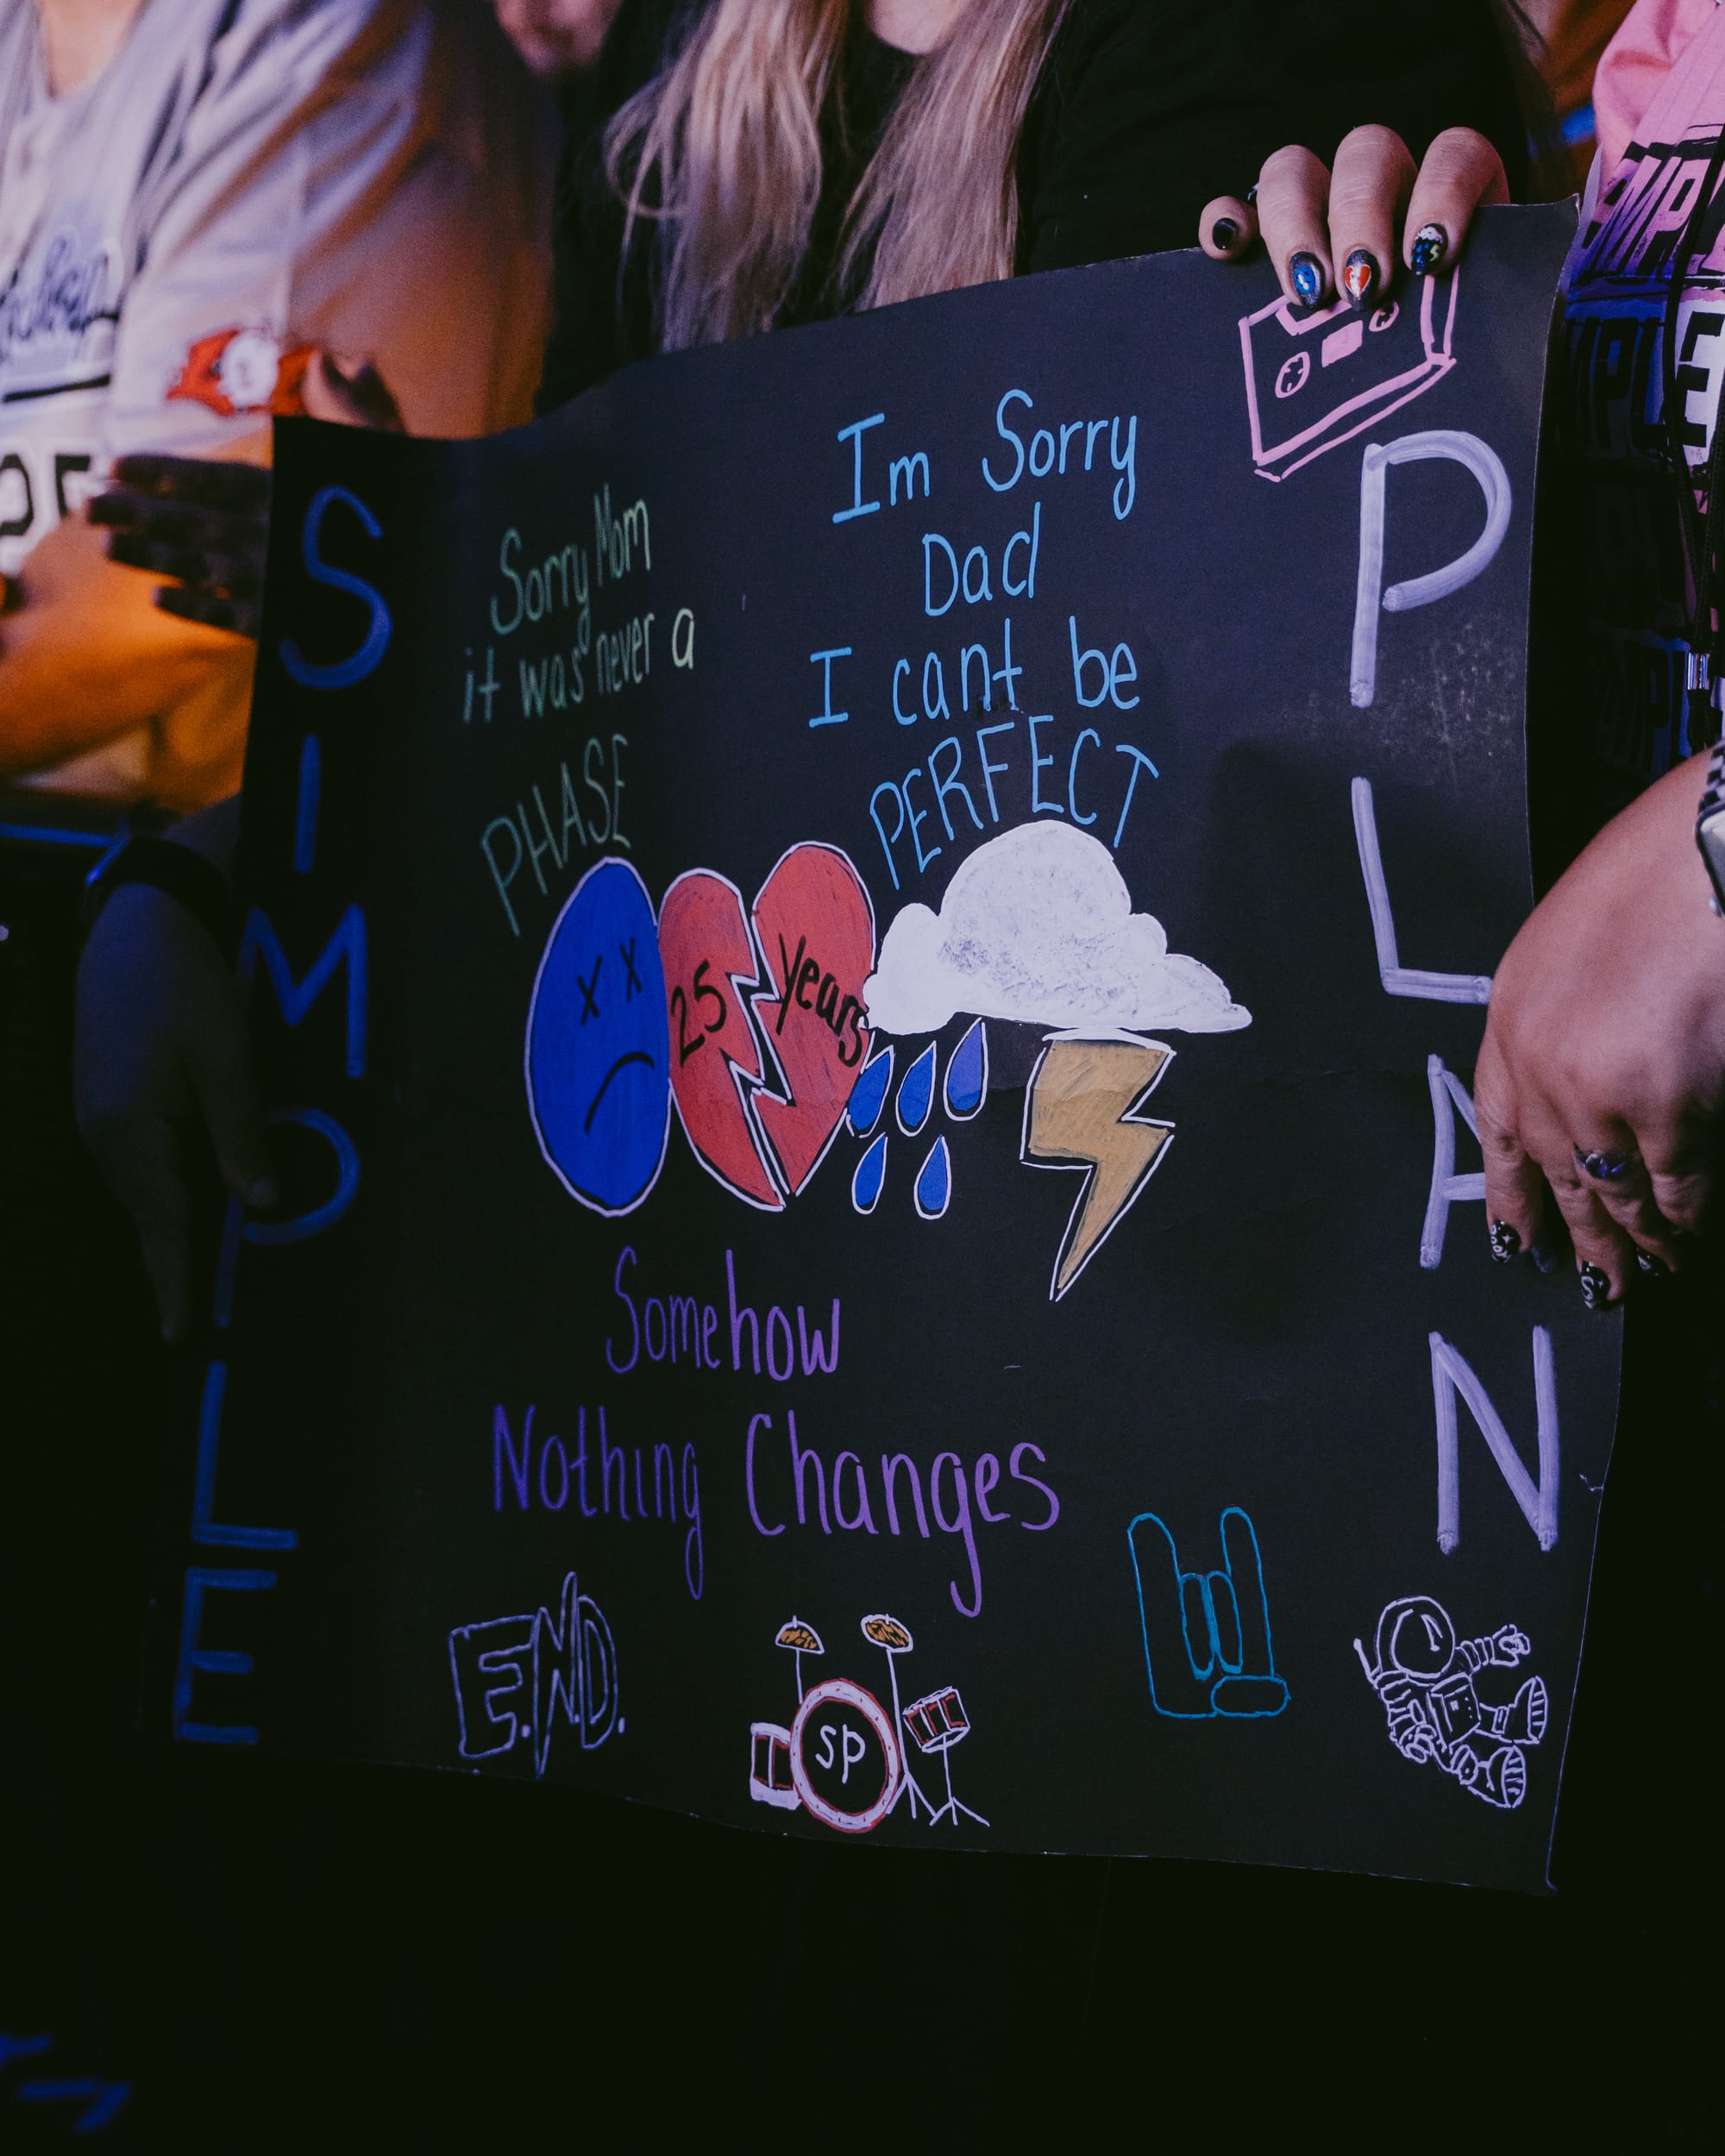 SIMPLE
PLAN
Sorry Mom
it was never a
PHASE
Im Sorry
Dad
I cant be
PERFECT
25 years
Somehow
Nothing Changes
E.N.D.
SP